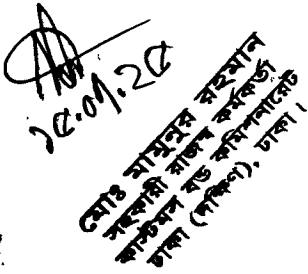 ১৫.০৭.২৫
মোঃ মামুনুর রহমান
সহকারী রাজস্ব কর্মকর্তা
কাস্টমস বন্ড কমিশনারেট
ঢাকা (দক্ষিণ), ঢাকা।